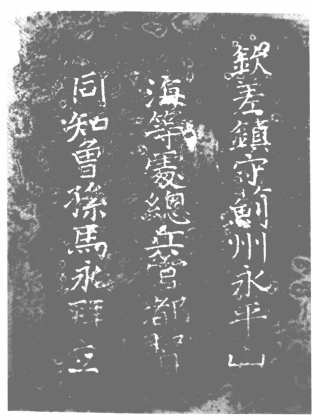 欽差鎮守薊州永平山
海等處總兵官都指
同知曾孫馬永拜立